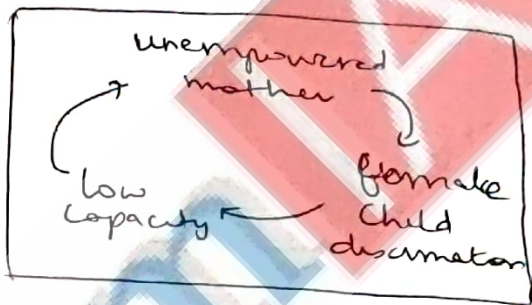 unempowered
mother
female
child
discrimaton
low
capacity